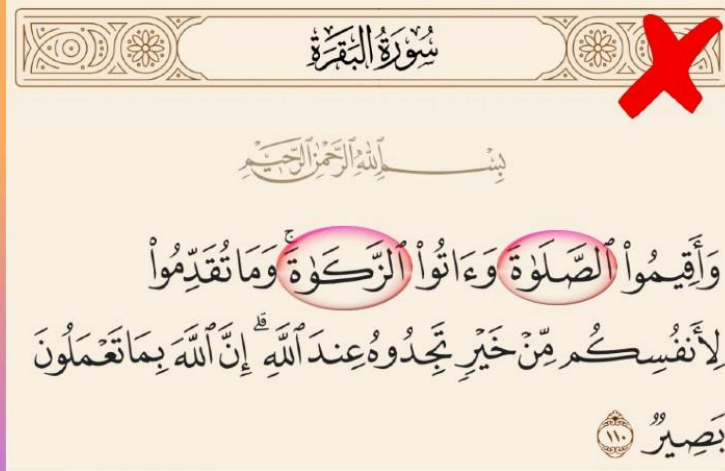 سُورَةُ البَقَرَةِ
بِسْمِ ٱللَّهِ ٱلرَّحْمَٰنِ ٱلرَّحِيمِ
وَأَقِيمُوا۟ ٱلصَّلَوٰةَ وَءَاتُوا۟ ٱلزَّكَوٰةَ ۚ وَمَا تُقَدِّمُوا۟
لِأَنفُسِكُم مِّنْ خَيْرٍ تَجِدُوهُ عِندَ ٱللَّهِ ۗ إِنَّ ٱللَّهَ بِمَا تَعْمَلُونَ
بَصِيرٌ ١١٠